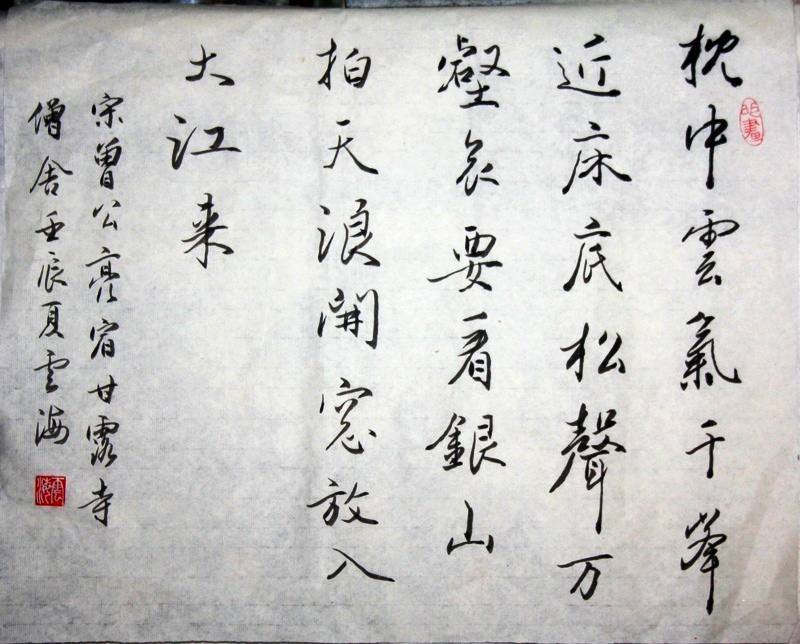 枕中雲氣千峯
近床底松聲万
壑哀要看銀山
拍天浪開窓放入
大江来
宋曾公亮宿甘露寺
僧舍壬辰夏雲海
雲海